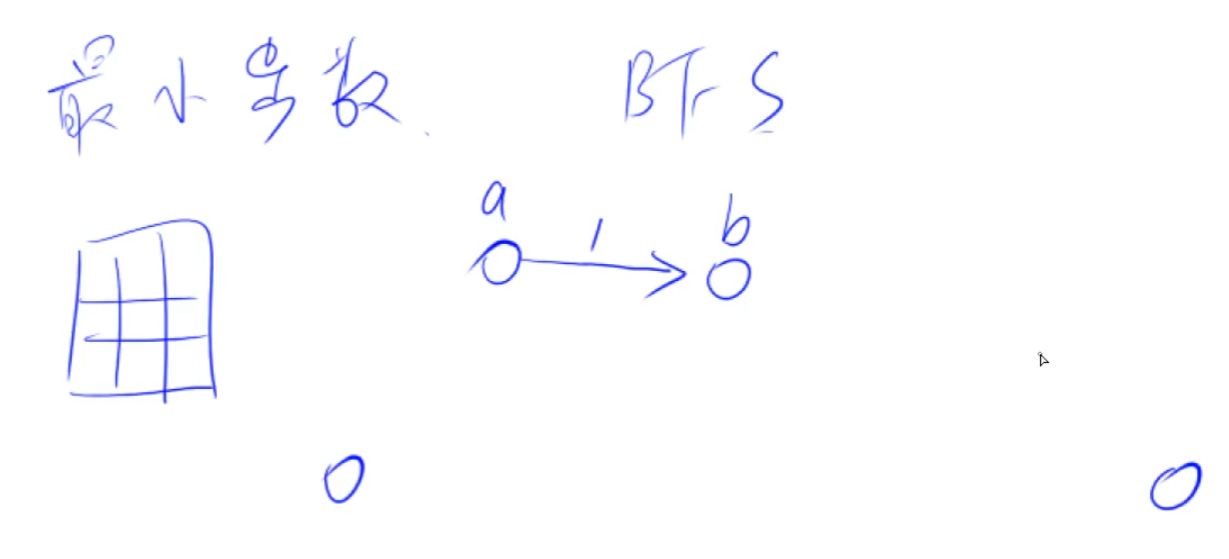 最小步数 BFS
a 1 b